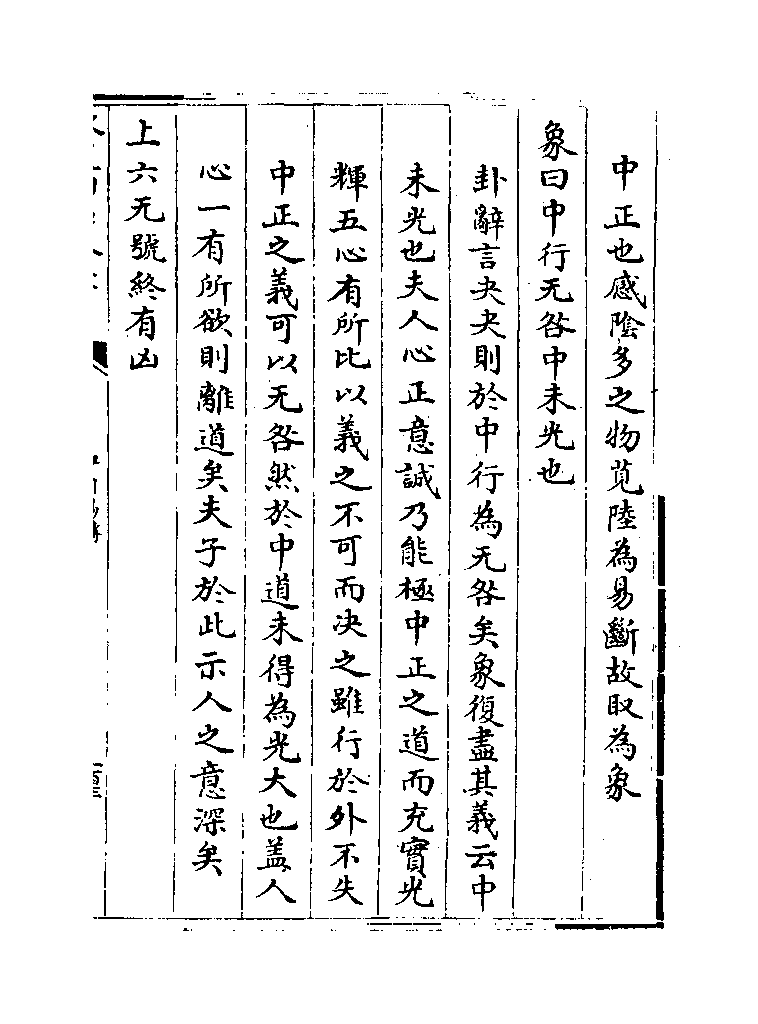 中正也感隂多之物莧陸為易斷故取為象
象曰中行无咎中未光也
卦辭言夬夬則於中行為无咎矣象復盡其義云中
未光也夫人心正意誠乃能極中正之道而充實光
輝五心有所比以義之不可而决之雖行於外不失
中正之義可以无咎然於中道未得為光大也盖人
心一有所欲則離道矣夫子於此示人之意深矣
上六无號終有凶